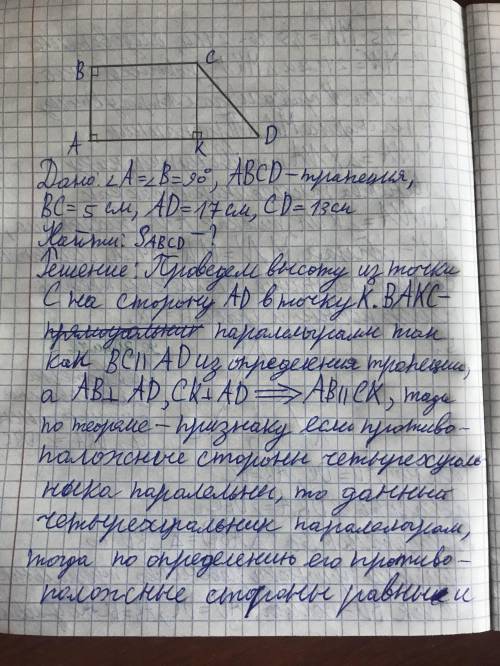 B C
A K D
Дано: ∠A=∠B=90°, ABCD-трапеция,
BC=5 см, AD=17см, CD=13см
Найти: SABCD-?
Решение: Проведем высоту из точки
C на сторону AD в точку K. BAKC-
прямоугольник паралелыграм так
как BC∥AD из определения трапеции,
а AB⊥AD, CK⊥AD ⟹ AB∥CK, тогда
по теореме-признаку если противо-
положные стороны четырехуголь
ныка паралельны, то данный
четырехугральник паралелограм,
тогда по определению его противо-
положные стороны равны и